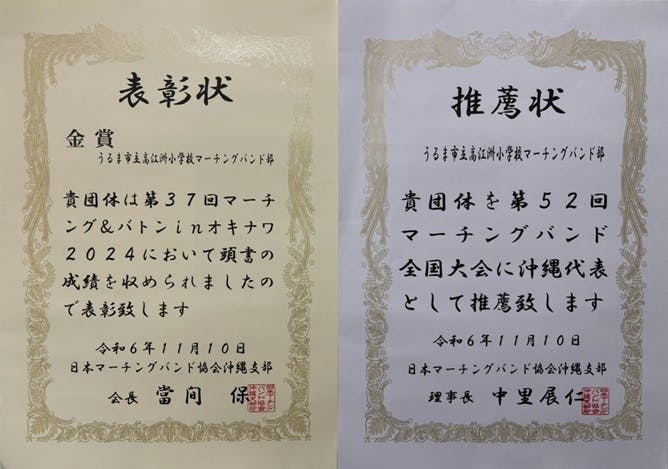 表彰状
金賞
うるま市立高江洲小学校マーチングバンド部
貴団体は第37回マーチ
ング&バトンinオキナワ
2024において頭書の
成績を収められましたの
で表彰致します
令和6年11月10日
日本マーチングバンド協会沖縄支部
会長 當间 保
推薦状
うるま市立高江洲小学校マーチングバンド部
貴団体を第52回
マーチングバンド
全国大会に沖縄代表
として推薦致します
令和6年11月10日
日本マーチングバンド協会沖縄支部
理事長 中里展仁